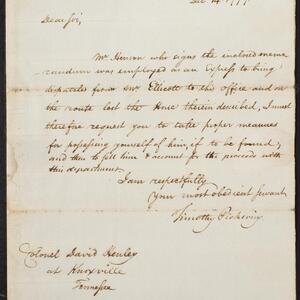 Dec 14 1797.
Dear Sir,
Mr Henson who signs the inclosed memo-
randum was employed as an Express to bring
dispatches from Mr Ellicott to this office and on
the route lost the horse therein described, I must
therefore request you to take proper measures
for possessing yourself of him, if to be found,
and then to sell him & account for the proceeds with
this department.
I am respectfully
Your most obedient servant
Timothy Pickering
Colonel David Henley
at Knoxville
Tennessee